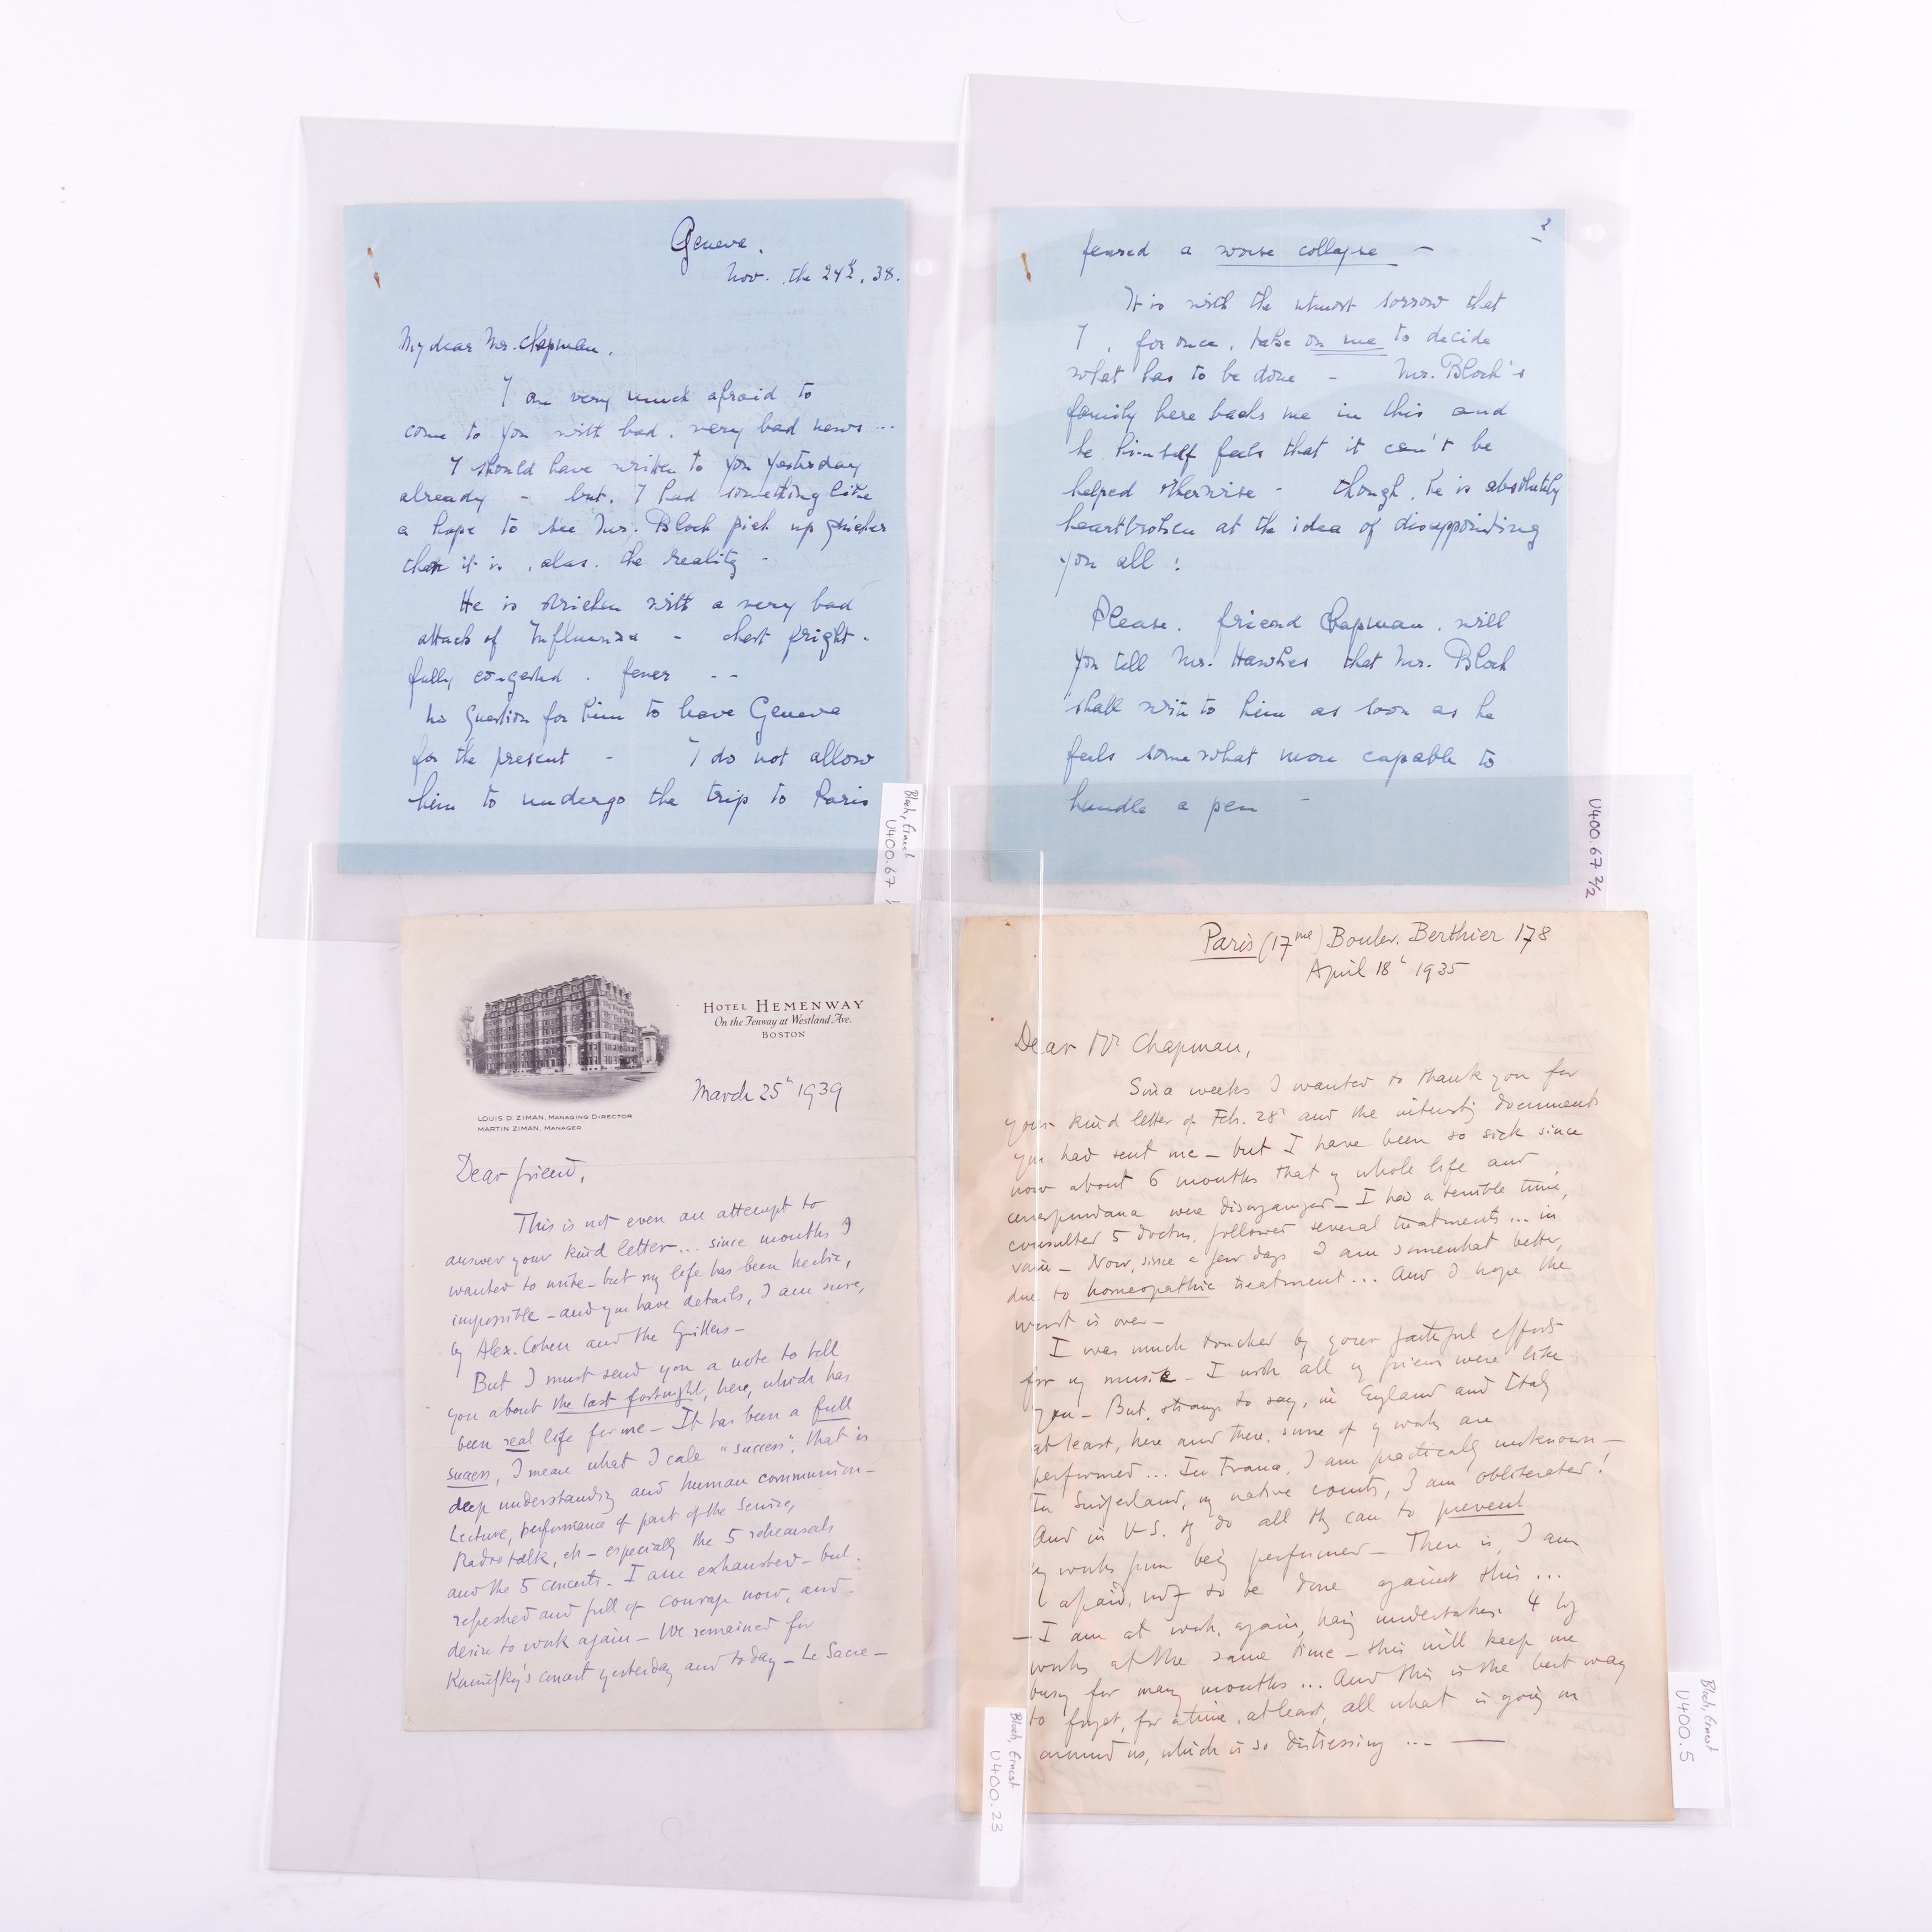 Geneva.
Nov. the 24th, 38.
My dear Mr. Chapman,
I am very much afraid to
come to you with bad, very bad news ...
I should have written to you yesterday
already - but, I had something like
a hope to see Mr. Bloch pick up quicker
than it is, alas, the reality -
He is stricken with a very bad
attack of Influenza - chest fright-
fully congested. fever --
no question for him to leave Geneva
for the present - I do not allow
him to undergo the trip to Paris
Bloch, Ernest
U400.67
2
feared a worse collapse -
It is with the utmost sorrow that
I, for once, take on me to decide
what has to be done - Mr. Bloch's
family here backs me in this and
he himself feels that it can't be
helped otherwise - though, he is absolutely
heartbroken at the idea of disappointing
you all!
Please, friend Chapman, will
you tell Mr. Hawkes that Mr. Bloch
shall write to him as soon as he
feels somewhat more capable to
handle a pen -
U400.67 2/2
HOTEL HEMENWAY
On the Fenway at Westland Ave.
BOSTON
March 25th 1939
LOUIS D. ZIMAN, MANAGING DIRECTOR
MARTIN ZIMAN, MANAGER
Dear friend,
This is not even an attempt to
answer your kind letter... since months I
wanted to write - but my life has been hectic,
impossible - and you have details, I am sure,
by Alex. Cohen and the Grillers -
But I must send you a note to tell
you about the last fortnight, here, which has
been real life for me - It has been a full
success, I mean what I call "success", that is
deep understanding and human communion -
Lecture, performance of part of the Service,
Radio talk, etc - especially the 5 rehearsals
and the 5 concerts - I am exhausted - but
refreshed and full of courage now, and
desire to work again - We remained for
Koussefky's concert yesterday and today - Le Sacre -
Bloch, Ernest
U400.23
Paris (17me) Boulev. Berthier 178
April 18th 1935
Dear Mr Chapman,
Since weeks I wanted to thank you for
your kind letter of Feb. 28th and the interesting documents
you had sent me - but I have been so sick since
now about 6 months that my whole life and
correspondance were disorganized - I had a terrible time,
consulted 5 doctors, followed several treatments... in
vain - Now, since a few days I am somewhat better,
due to homeopathic treatment... And I hope the
worst is over -
I was much touched by your faithful efforts
for my music - I wish all my friends were like
you - But, strange to say, in England and Italy
at least, here and there, some of my works are
performed... In France, I am practically unknown -
In Switzerland, my native country, I am obliterated!
And in U.S. they do all they can to prevent
my works from being performed - There is, I am
afraid, nothing to be done against this...
- I am at work, again, having undertaken 4 big
works at the same time - this will keep me
busy for many months... And this is the best way
to forget, for a time, at least, all what is going on
around us, which is so distressing ... -
Bloch, Ernest
U400.5